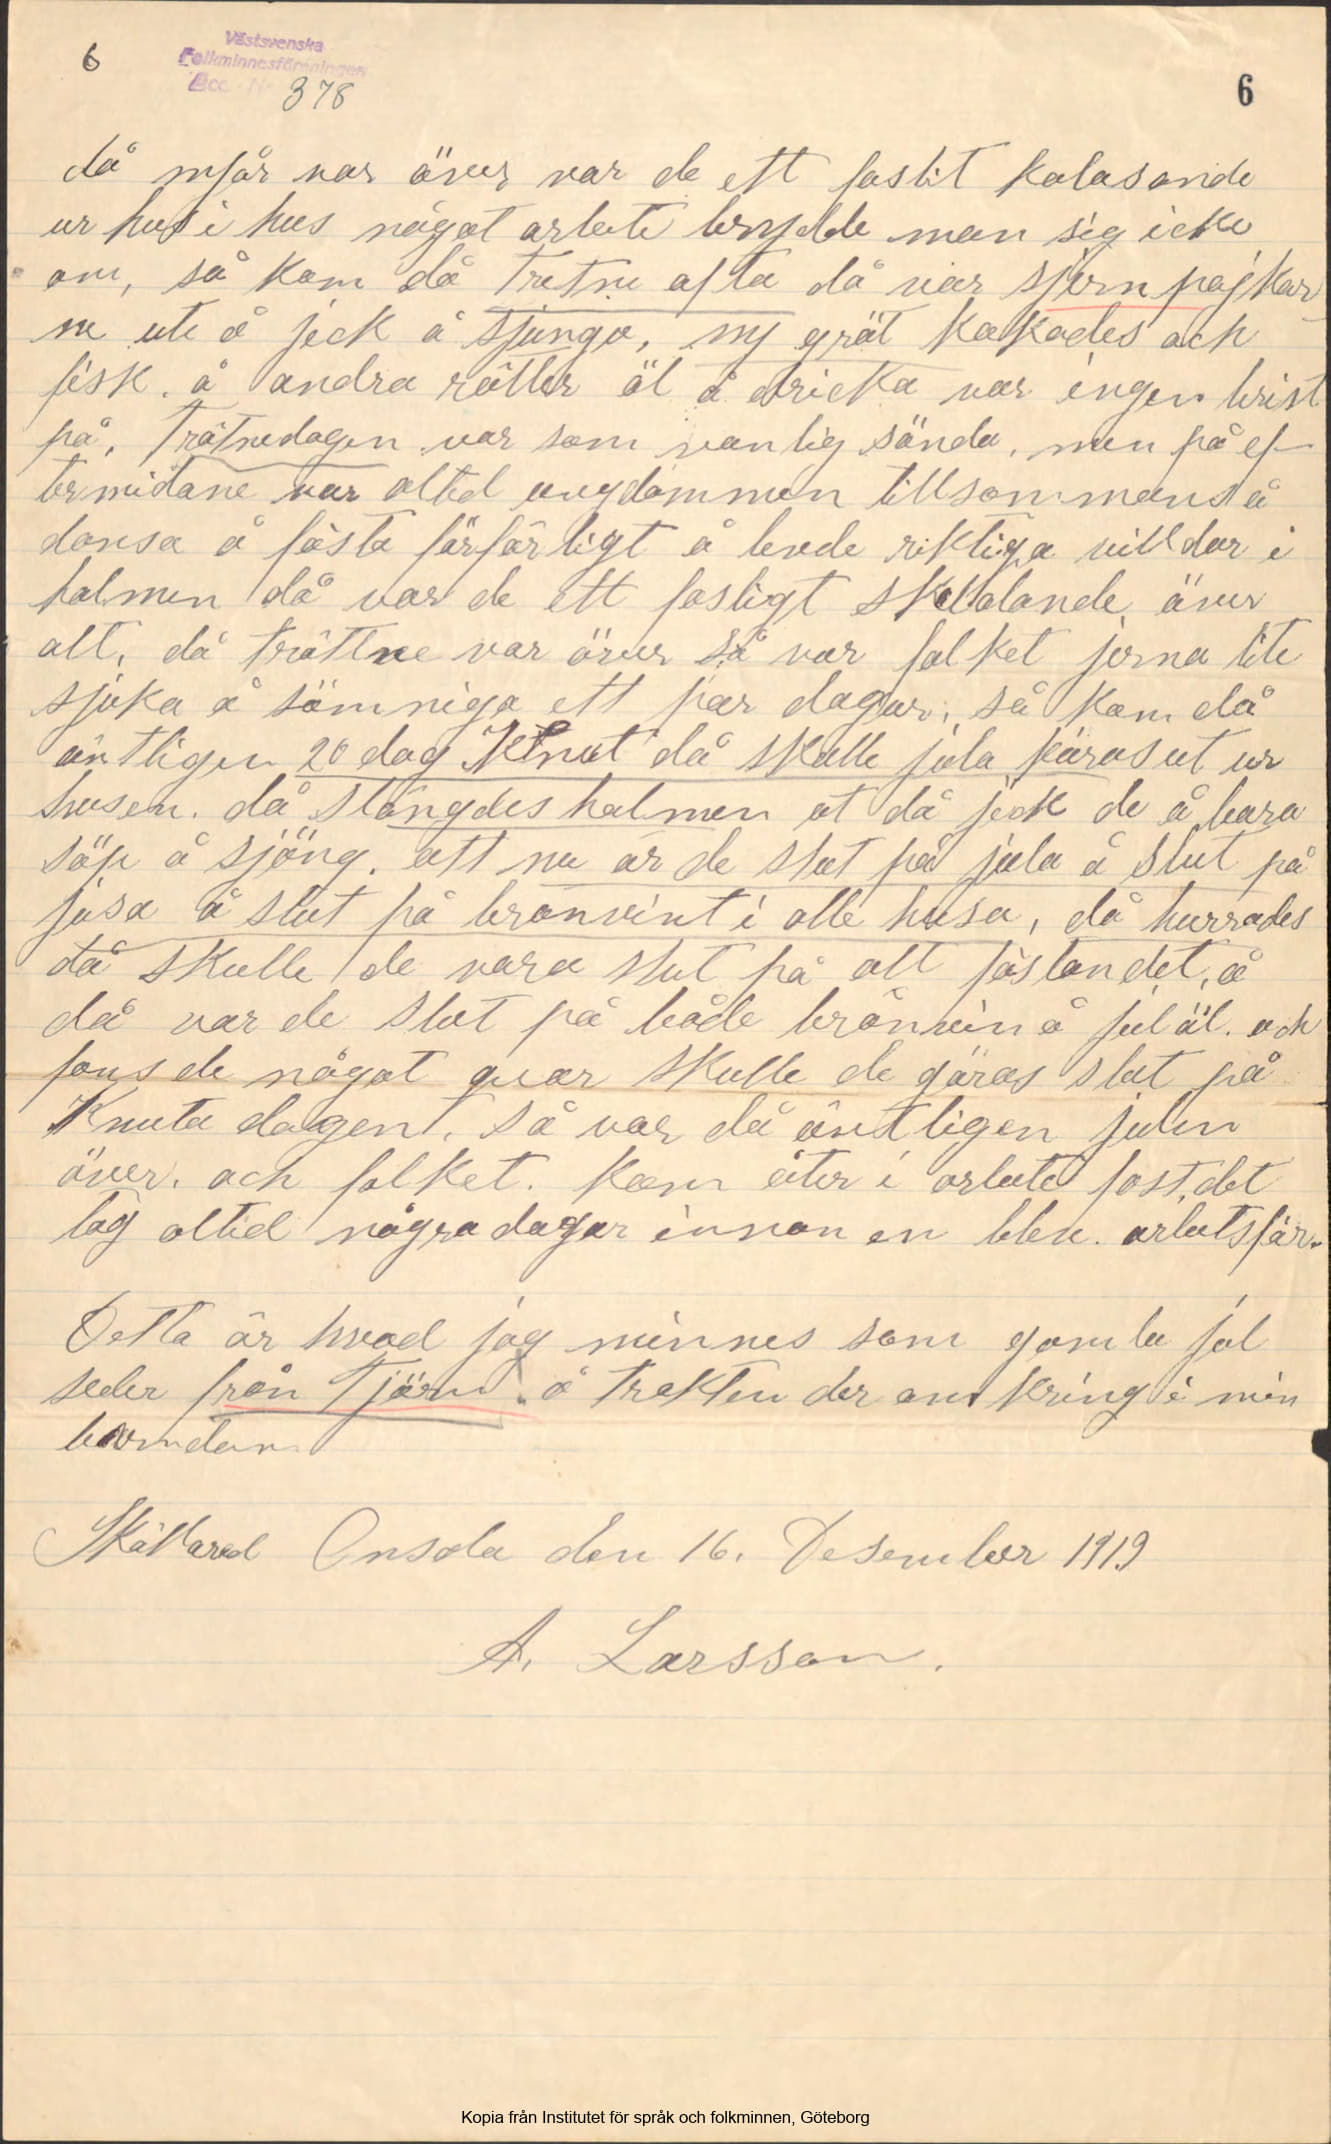 6
Västsvenska
Folkminnesföreningen
Acc. Nr 378
6
då nyår var över var de ett faslit kalasande
ur hus i hus något arbete brydde man sig icke
om, så kom då tretne afta då var sjern pajkar
ne ute å jeck å sjunga, ny gröt kokades och
fisk. å andra rätter öl å dricka var ingen brist
på, Trätnedagen var som vanlig sånda, men på ef
termidane var altid ungdommen tillsammans å
dansa å fästa förfärligt å levde riktiga villdar i
halmen då var de ett fasligt skolldande över
alt, då trättne var över så var folket jerna lite
sjuka å sömniga ett par dagar, så kom då
äntligen 20 dag Knut då skulle jula köras ut ur
husen. då slängdes halmen ut då jeck de å bara
söp å sjöng. att nu är de slut på jula å slut på
jusa å slut på bränvint i alle husa, då hurrades
då skulle de vara slut på alt fästandet, å
då var de slut på både brännvin å julöl. och
fans de något qvar skulle de göras slut på
Knuta dagent. så var då äntligen julen
över. och folket. kom åter i arbete fast det
tog altid några dagar innan en blev. arbetsför.
Detta är hvad jag minnes som gamla jul
seder från Tjörn. å trakten der om kring i min
barndom
Skällared Onsala den 16. Desember 1919
A. Larsson.
Kopia från Institutet för språk och folkminnen, Göteborg